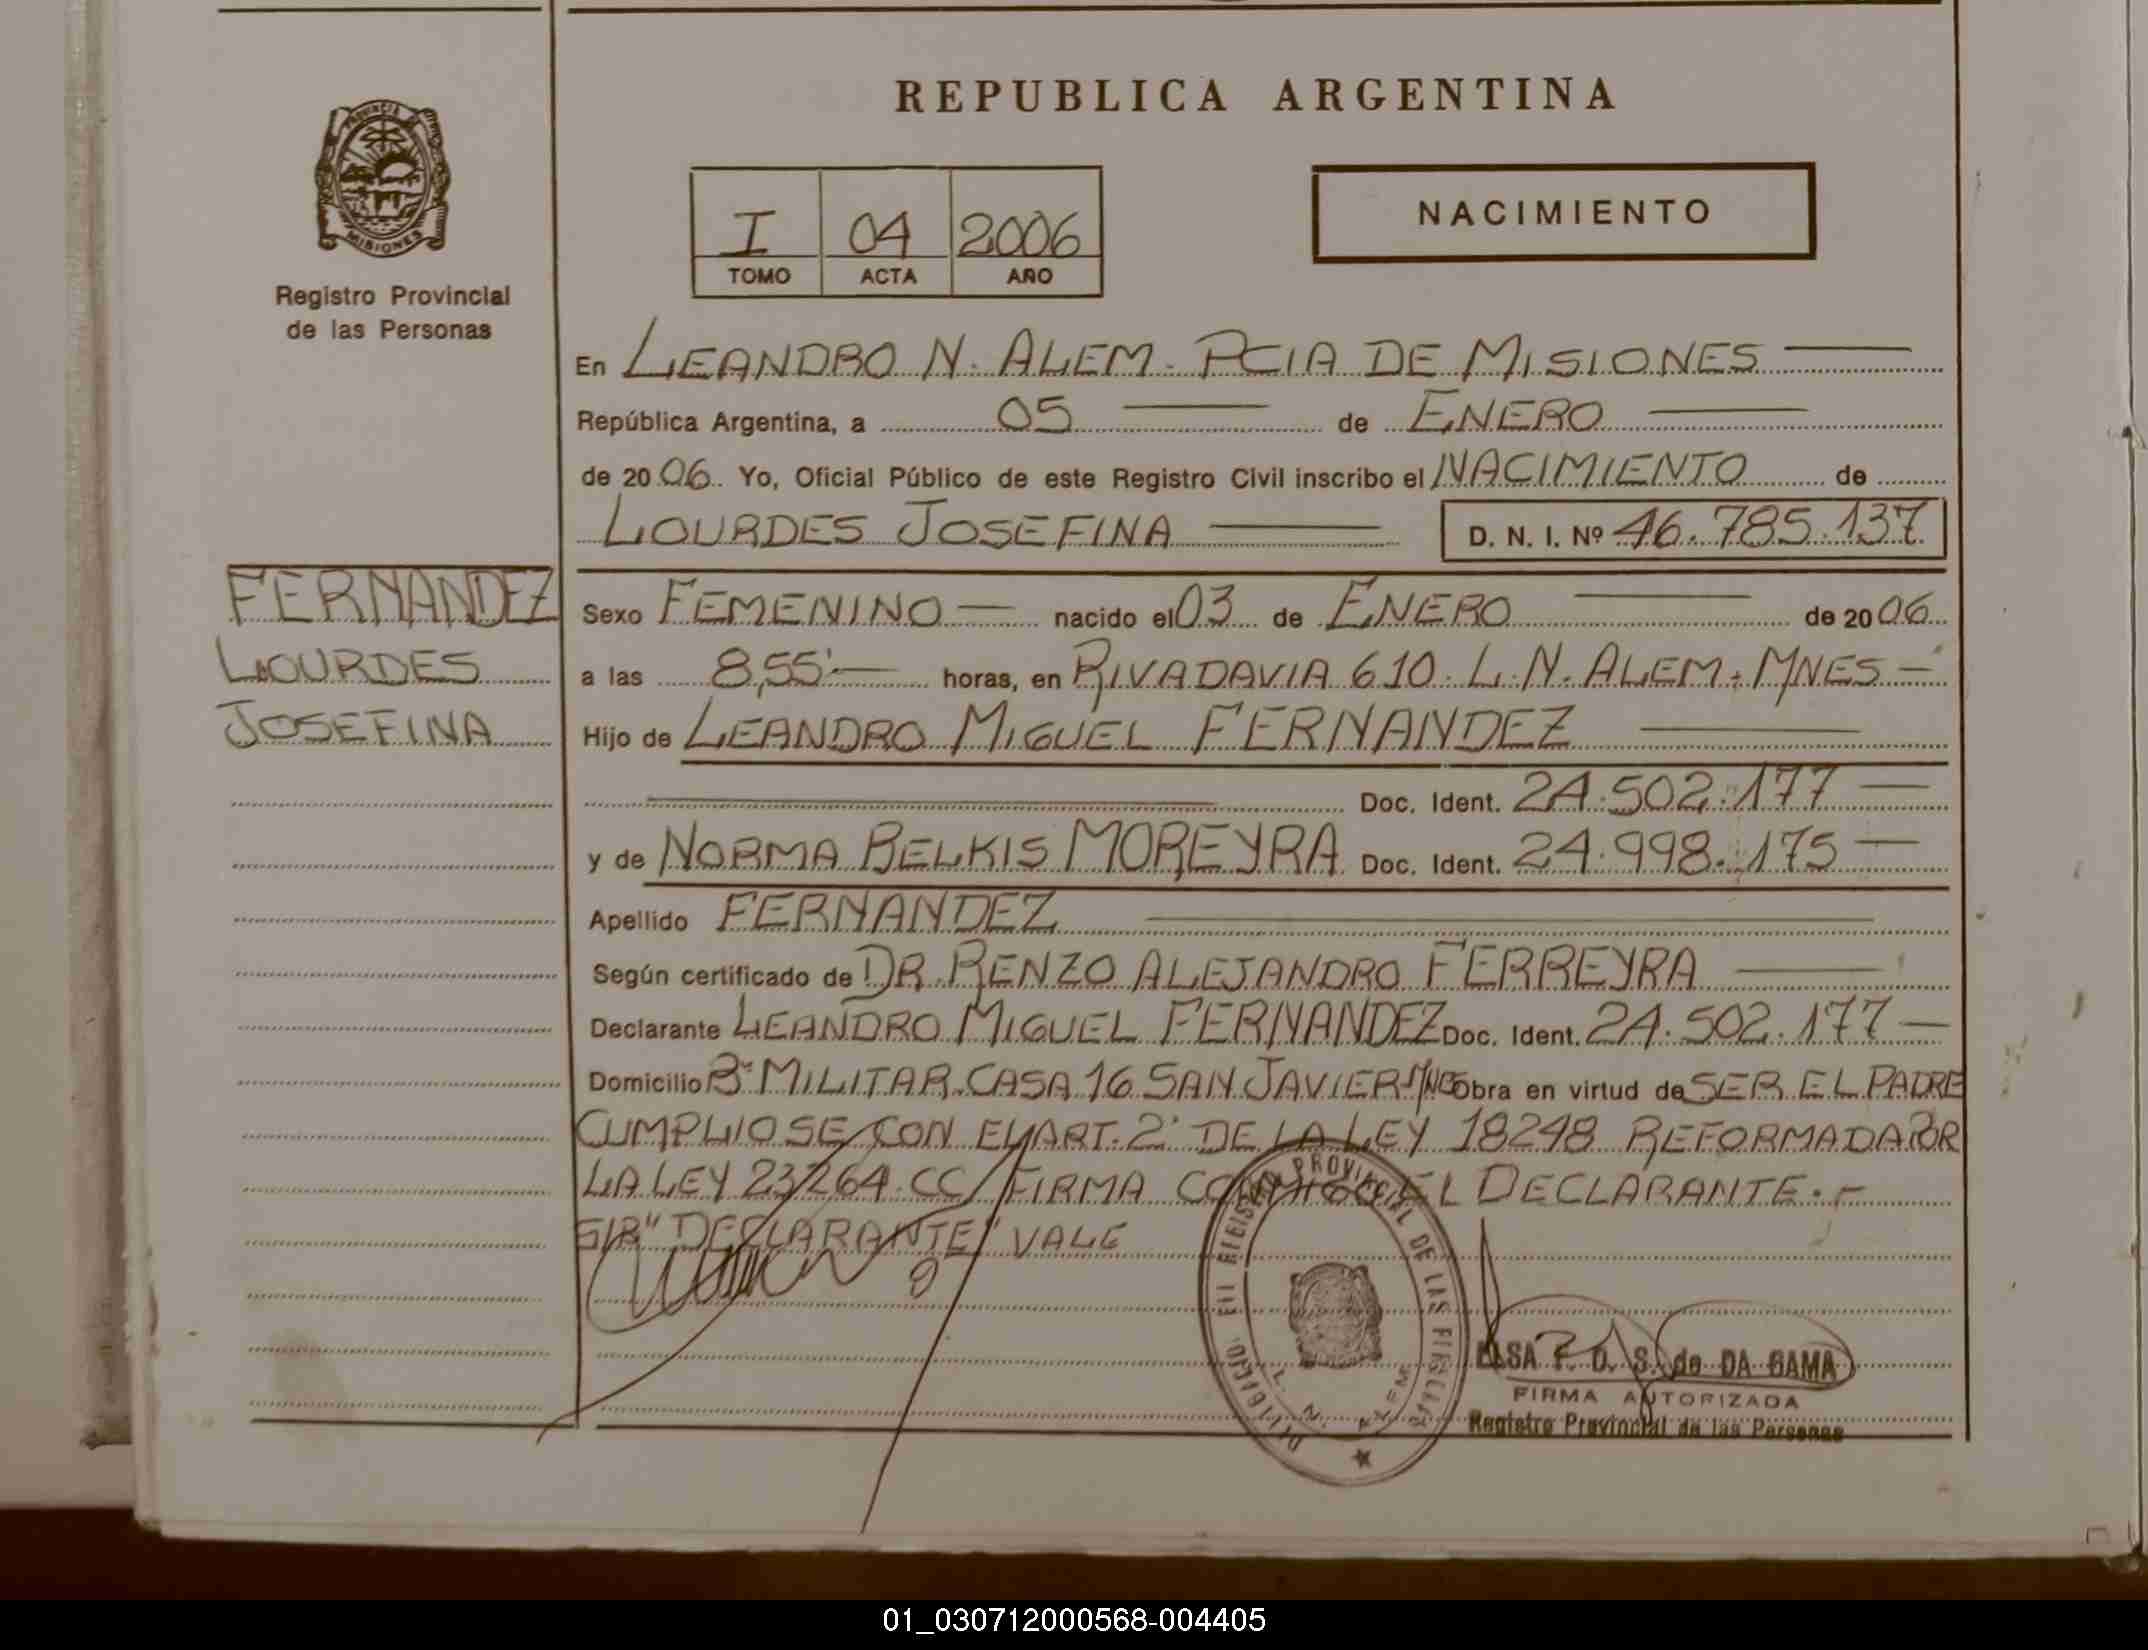 REPUBLICA ARGENTINA
PROVINCIA DE
MISIONES
Registro Provincial
de las Personas
I 04 2006
TOMO ACTA AÑO
NACIMIENTO
En LEANDRO N. ALEM. PCIA DE MISIONES
República Argentina, a 05 de ENERO
de 2006. Yo, Oficial Público de este Registro Civil inscribo el NACIMIENTO de
LOURDES JOSEFINA D. N. I. Nº 46.785.137
FERNANDEZ
LOURDES
JOSEFINA
Sexo FEMENINO nacido el 03 de ENERO de 2006
a las 8,55' horas, en RIVADAVIA 610. L. N. ALEM. MNES
Hijo de LEANDRO MIGUEL FERNANDEZ
Doc. Ident. 24.502.177
y de NORMA BELKIS MOREYRA Doc. Ident. 24.998.175
Apellido FERNANDEZ
Según certificado de DR. RENZO ALEJANDRO FERREYRA
Declarante LEANDRO MIGUEL FERNANDEZ Doc. Ident. 24.502.177
Domicilio Bº MILITAR. CASA 16 SAN JAVIER MNES Obra en virtud de SER EL PADRE
CUMPLIOSE CON EL ART. 2º DE LA LEY 18248 REFORMADA POR
LA LEY 23264. CC/ FIRMA CONMIGO EL DECLARANTE.-
S/R "DECLARANTE" VALE
PROVINCIAL DE LAS
L. N. ALEM
ELSA F. D. S. de DA GAMA
FIRMA AUTORIZADA
Registro Provincial de las Personas
01_030712000568-004405